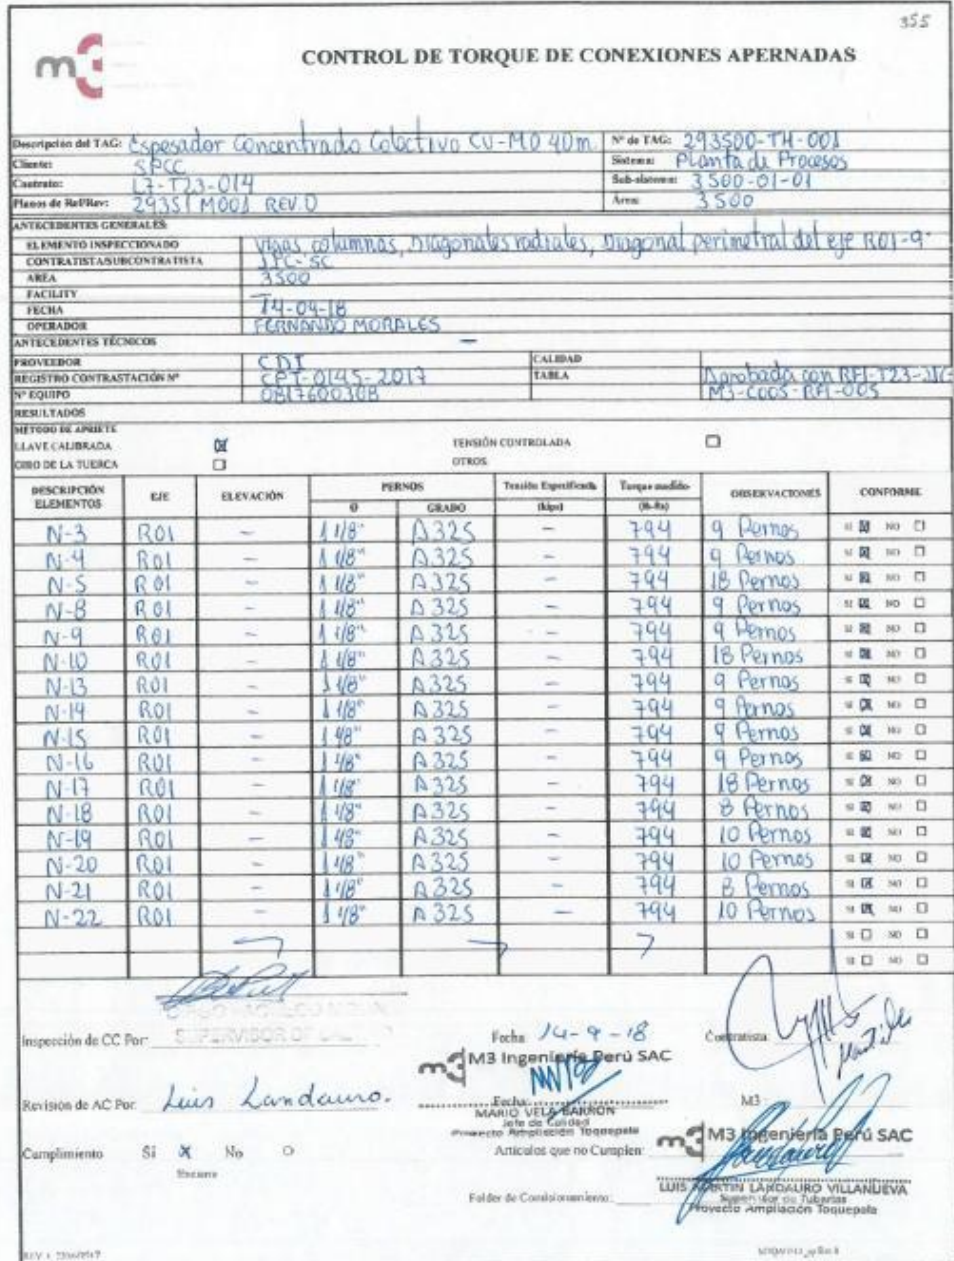 355
m3
CONTROL DE TORQUE DE CONEXIONES APERNADAS
Descripción del TAG: Espesador Concentrado Colectivo CU-MO 40m Nº de TAG: 293500-TH-001
Cliente: SPCC Sistema: Planta de Procesos
Contrato: L7-T23-014 Sub-sistema: 3500-01-01
Planos de Ref/Rev: 29351 M001 REV.0 Área: 3500
ANTECEDENTES GENERALES:
ELEMENTO INSPECCIONADO Vigas, columnas, Diagonales radiales, Diagonal perimetral del eje R01-9
CONTRATISTA/SUBCONTRATISTA JPC-SC
AREA 3500
FACILITY
FECHA 14-09-18
OPERADOR FERNANDO MORALES
ANTECEDENTES TÉCNICOS -
PROVEEDOR CDI CALIDAD
REGISTRO CONTRASTACIÓN Nº CPT-0145-2017 TABLA Aprobada con RFI-T23-
Nº EQUIPO 0817600308 M3-C005-RFI-005
RESULTADOS
METODO DE APRIETE
LLAVE CALIBRADA TENSIÓN CONTROLADA
GIRO DE LA TUERCA OTROS
DESCRIPCIÓN ELEMENTOS EJE ELEVACIÓN PERNOS Tensión Especificada Torque medido OBSERVACIONES CONFORME
Ø GRADO (kips) (lb-ft)
N-3 R01 - 1 1/8" A325 - 794 9 Pernos SI NO
N-4 R01 - 1 1/8" A325 - 794 9 Pernos SI NO
N-5 R01 - 1 1/8" A325 - 794 18 Pernos SI NO
N-8 R01 - 1 1/8" A325 - 794 9 Pernos SI NO
N-9 R01 - 1 1/8" A325 - 794 9 Pernos SI NO
N-10 R01 - 1 1/8" A325 - 794 18 Pernos SI NO
N-13 R01 - 1 1/8" A325 - 794 9 Pernos SI NO
N-14 R01 - 1 1/8" A325 - 794 9 Pernos SI NO
N-15 R01 - 1 1/8" A325 - 794 9 Pernos SI NO
N-16 R01 - 1 1/8" A325 - 794 9 Pernos SI NO
N-17 R01 - 1 1/8" A325 - 794 18 Pernos SI NO
N-18 R01 - 1 1/8" A325 - 794 8 Pernos SI NO
N-19 R01 - 1 1/8" A325 - 794 10 Pernos SI NO
N-20 R01 - 1 1/8" A325 - 794 10 Pernos SI NO
N-21 R01 - 1 1/8" A325 - 794 8 Pernos SI NO
N-22 R01 - 1 1/8" A325 - 794 10 Pernos SI NO
SI NO
SI NO
Inspección de CC Por: SUPERVISOR DE Fecha 14-9-18 Contratista
m3 M3 Ingeniería Perú SAC
Revisión de AC Por: Luis Landauro. Fecha: M3
MARIO VELA BARRÓN
Jefe de Calidad
Proyecto Ampliación Toquepala
m3 M3 Ingeniería Perú SAC
Cumplimiento Si X No O Artículos que no Cumplen:
LUIS MARTIN LANDAURO VILLANUEVA
Supervisor de Tuberías
Proyecto Ampliación Toquepala
Folder de Condicionamiento: